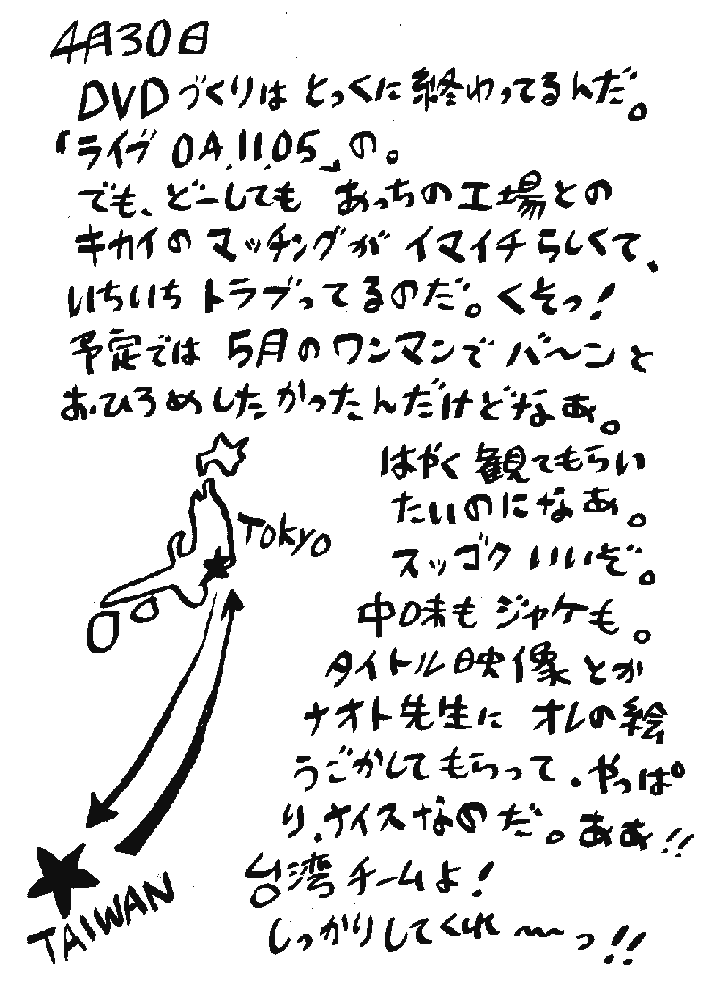 4月30日
DVDづくりは とっくに終わってるんだ。
「ライブ 04.11.05」の。
でも、どーしても あっちの工場との
キカイの マッチングが イマイチらしくて、
いちいち トラブってるのだ。くそっ!
予定では 5月のワンマンで バ〜ンと
おひろめしたかったんだけどなあ。
はやく観てもらい
たいのになあ。
スッゴク いいぞ。
中味も ジャケも。
タイトル映像とか
ナオト先生に オレの絵
うごかしてもらって、やっぱ
り、ナイスなのだ。ああ!!
台湾チームよ!
しっかりしてくれ〜〜っ!!
Tokyo
TAIWAN